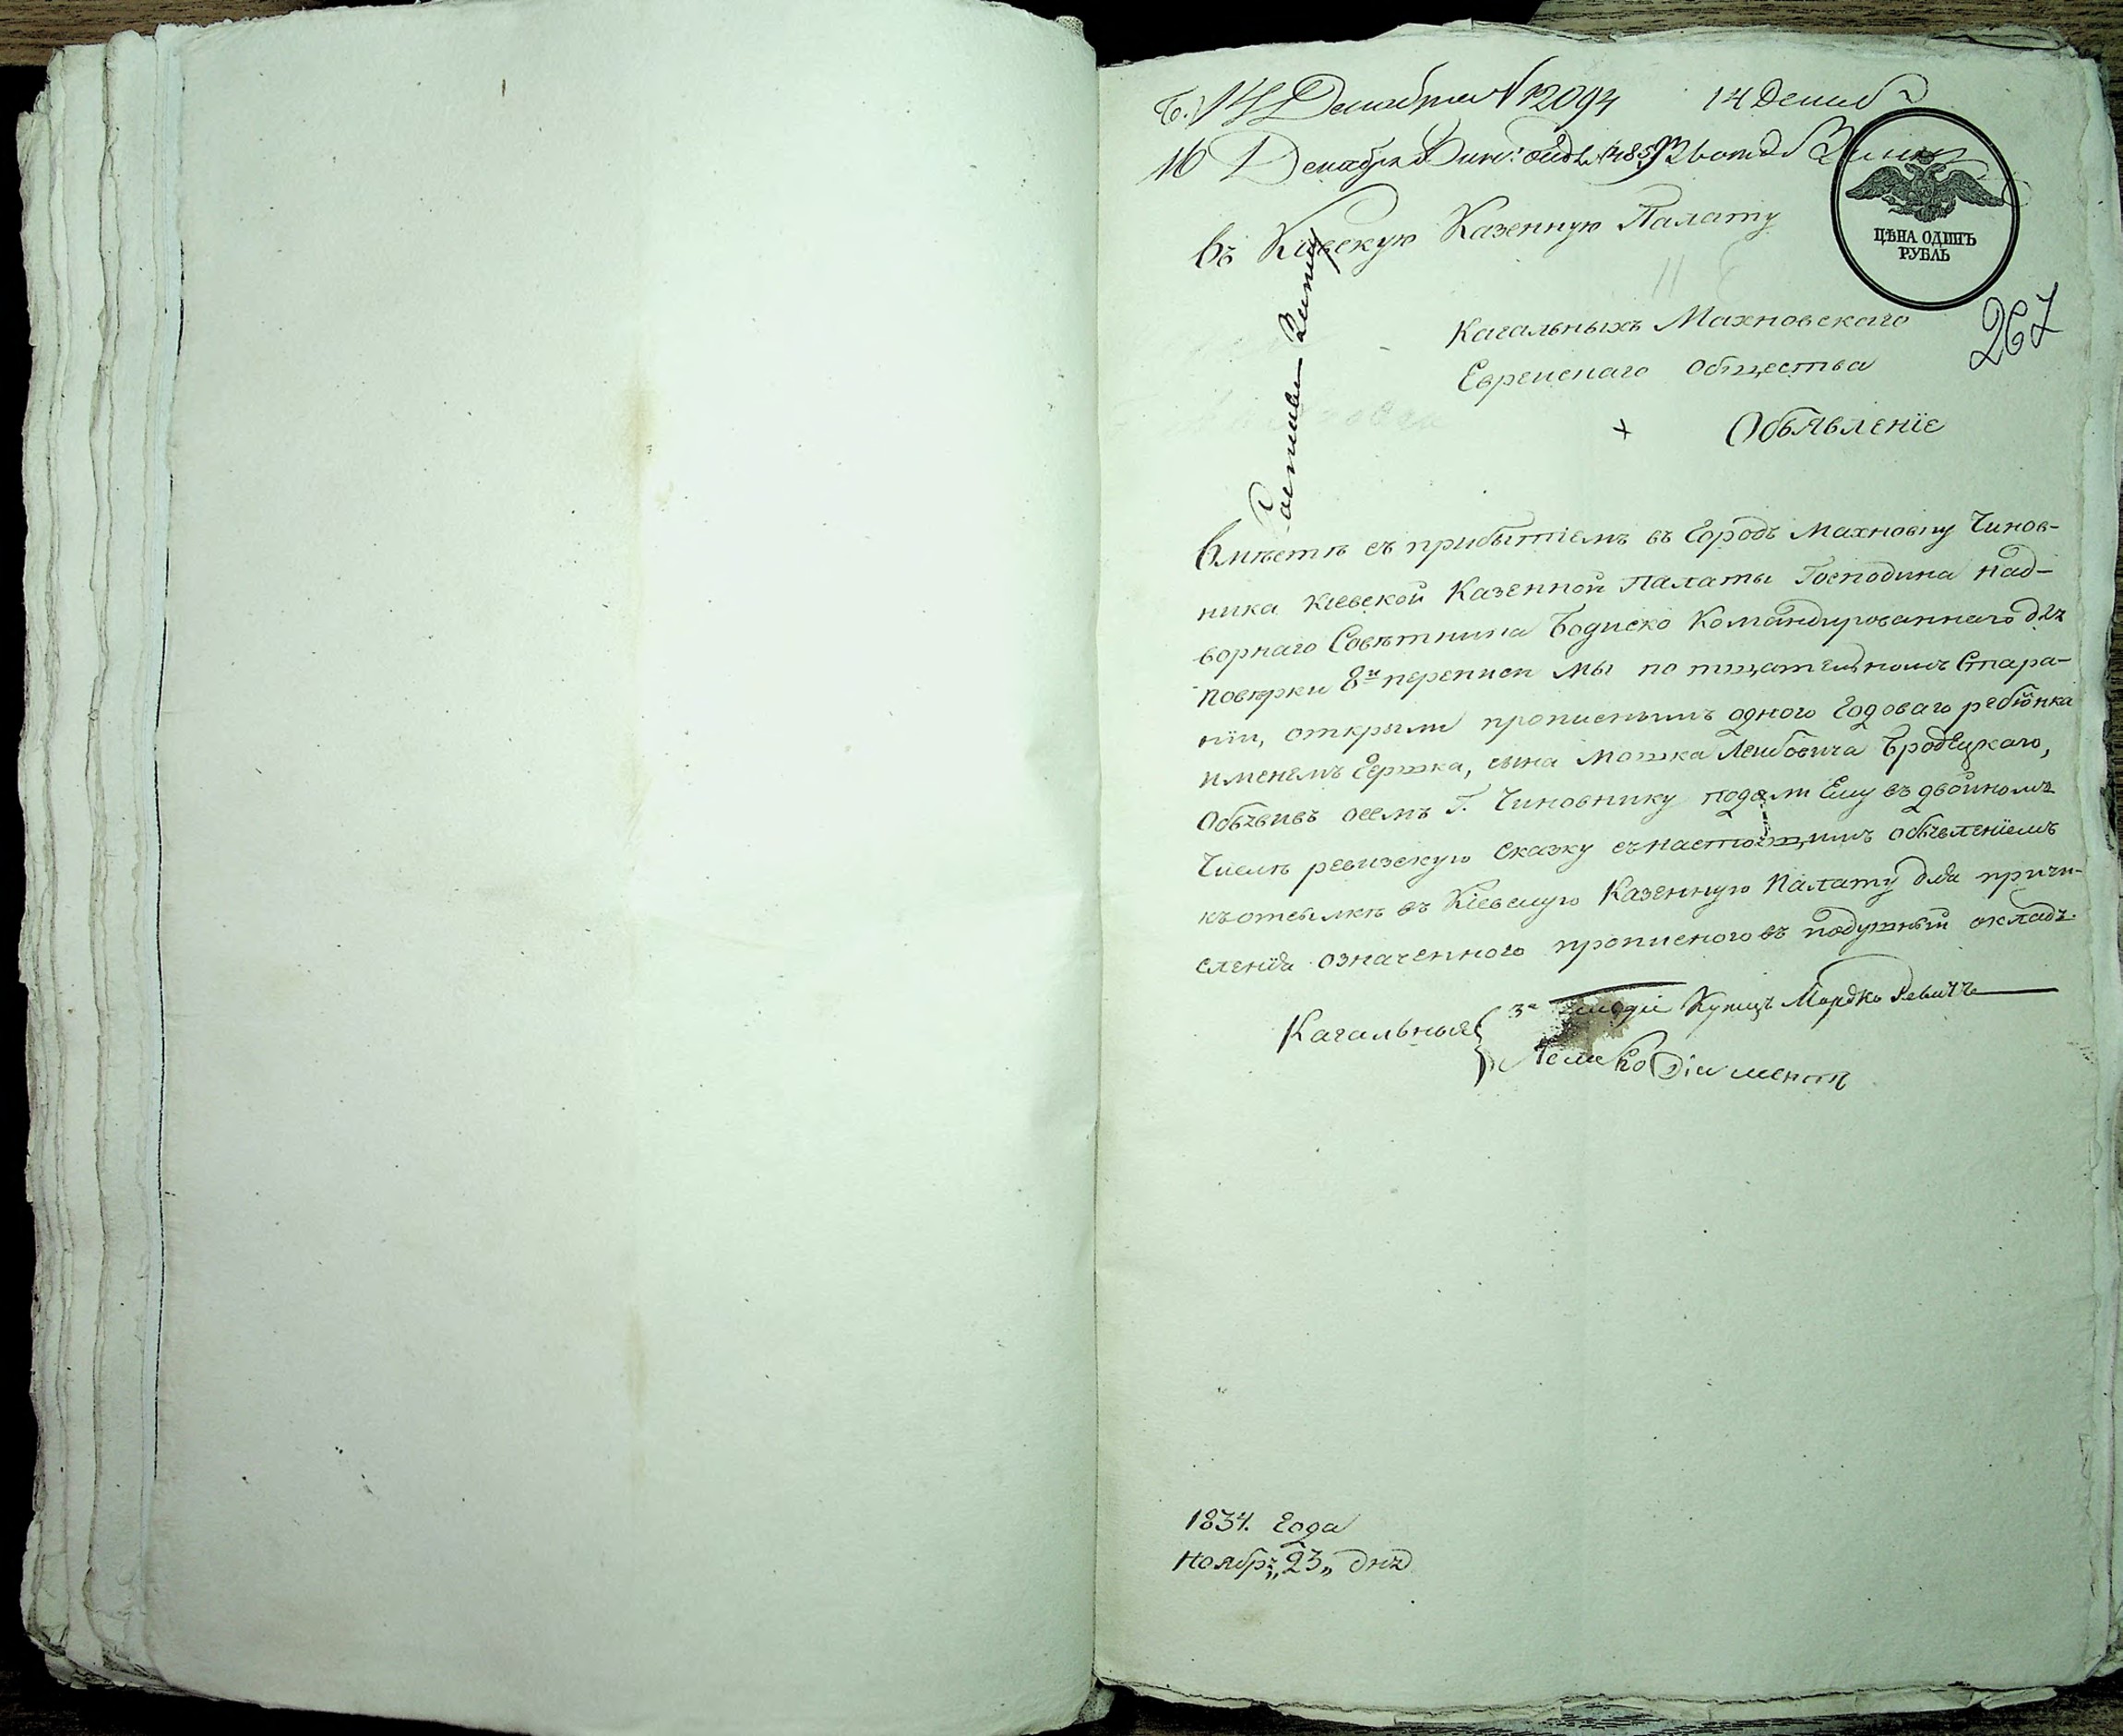 14 Декабря № 12094 14 Декаб
16 Декабря
ЦѢНА ОДИНЪ
РУБЛЬ
Въ Кіевскую Казенную Палату
267
Кагальныхъ Махновскаго
Еврейскаго Общества
Объявленіе
Вместѣ съ прибытіемъ въ Городъ Махновку Чинов-
ника Кіевской Казенной Палаты Господина Над-
ворнаго Совѣтника Бодиско Командированнаго для
поверки 8й переписи мы по тщательномъ Стара-
ніи, открыли прописнымъ одного Годоваго ребіонка
именемъ Гершка, сына Мошка Лейбовича Бродецкаго,
Объявивъ осемъ Г. Чиновнику подали Ему въ двойномъ
Числѣ ревизскую сказку съ настоящимъ объявленіемъ
къ отсылкѣ въ Кіевскую Казенную Палату для причи-
сленія означенного прописного въ подушный окладъ.
Кагальныя 3й Гильдіи Купецъ Мордко Ревичъ
Діаментъ
1834. Года
Ноябрь „23„ дня